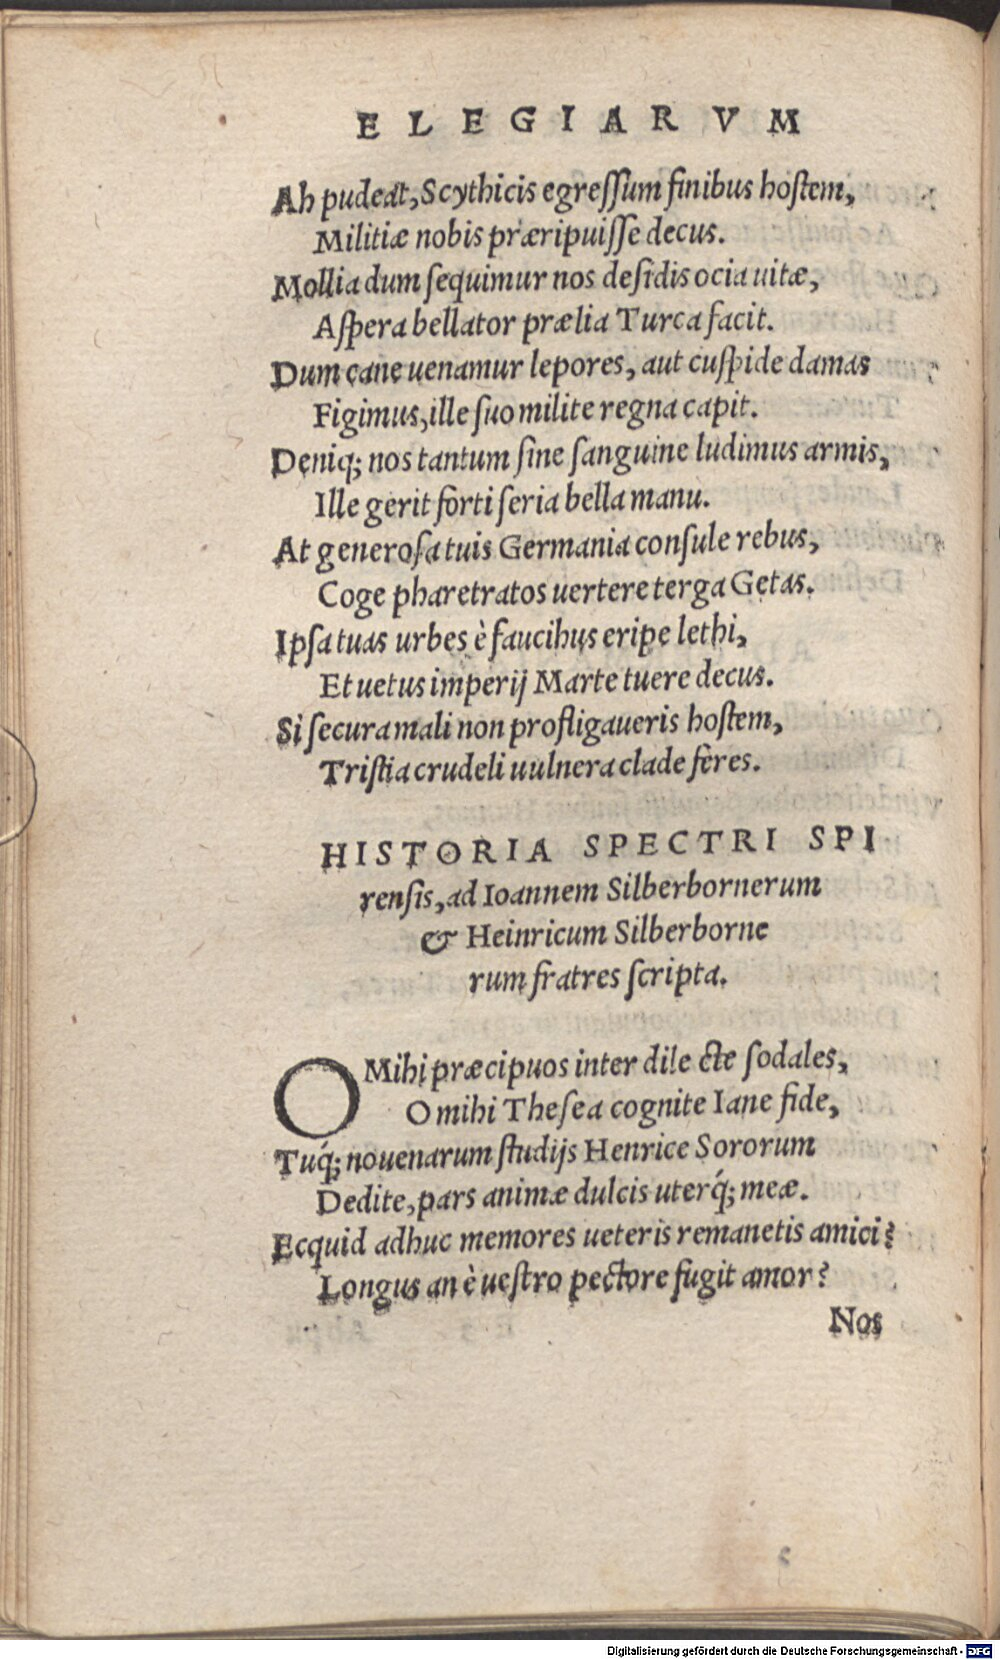 ELEGIARVM
Ah pudeat, Scythicis egreſſum finibus hoſtem,
Militiæ nobis præripuiſſe decus.
Mollia dum ſequimur nos deſidis ocia uitæ,
Aſpera bellator prælia Turca facit.
Dum cane uenamur lepores, aut cuſpide damas
Figimus, ille ſuo milite regna capit.
Deniq; nos tantum ſine ſanguine ludimus armis,
Ille gerit forti ſeria bella manu.
At generoſa tuis Germania conſule rebus,
Coge pharetratos uertere terga Getas.
Ipſa tuas urbes è faucibus eripe lethi,
Et uetus imperij Marte tuere decus.
Si ſecura mali non profligaueris hoſtem,
Triſtia crudeli uulnera clade feres.
HISTORIA SPECTRI SPI
renſis, ad Ioannem Silberbornerum
& Heinricum Silberborne
rum fratres ſcripta.
O Mihi præcipuos inter dilecte ſodales,
O mihi Theſea cognite Iane fide,
Tuq́; nouenarum ſtudijs Henrice Sororum
Dedite, pars animæ dulcis uterq́; meæ.
Ecquid adhuc memores ueteris remanetis amici?
Longus an è ueſtro pectore fugit amor?
Nos
Digitalisierung gefördert durch die Deutsche Forschungsgemeinschaft - DFG